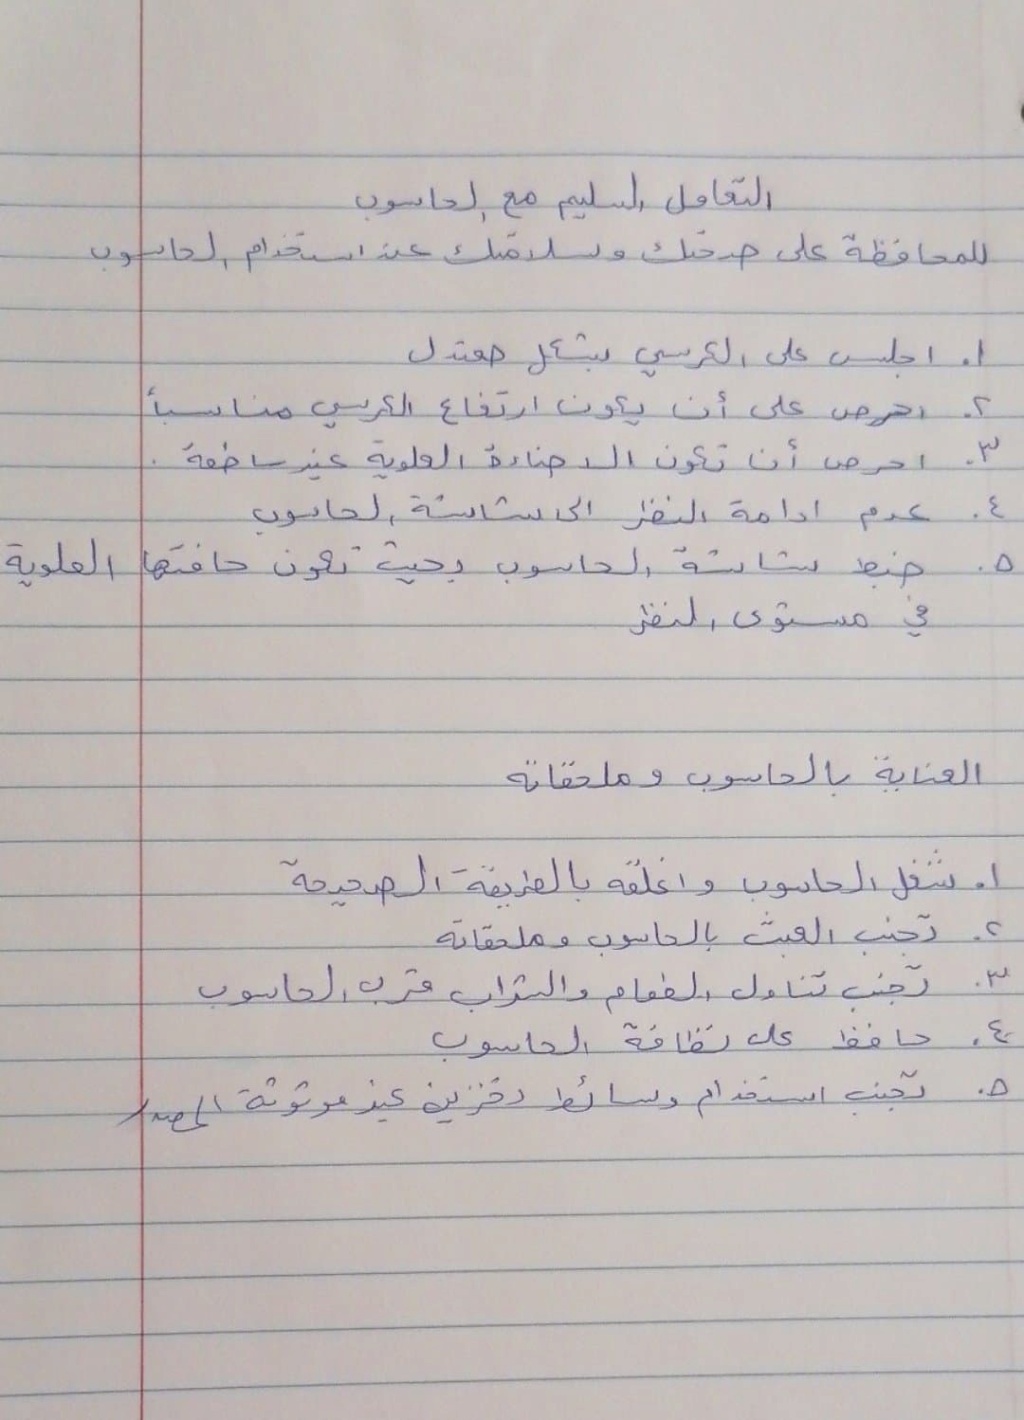 التعامل السليم مع الحاسوب
للمحافظة على صحتك وسلامتك عند استخدام الحاسوب
١. اجلس على الكرسي بشكل معتدل
٢. احرص على أن يكون ارتفاع الكرسي مناسباً
٣. احرص أن تكون الاضاءة العلوية غير ساطعة .
٤. عدم ادامة النظر الى شاشة الحاسوب
٥. ضبط شاشة الحاسوب بحيث تكون حافتها العلوية
في مستوى النظر
العناية بالحاسوب وملحقاته
١. شغل الحاسوب واغلقه بالطريقة الصحيحة
٢. تجنب العبث بالحاسوب وملحقاته
٣. تجنب تناول الطعام والشراب قرب الحاسوب
٤. حافظ على نظافة الحاسوب
٥. تجنب استخدام وسائط تخزين غير موثوثة المصدر